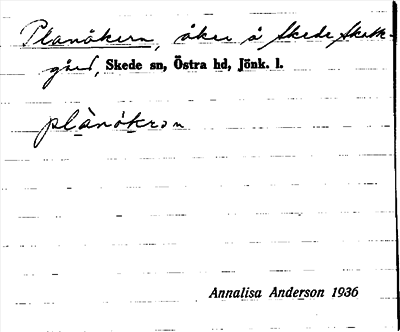 Planåkern, åker å Skede Skatte-
gård, Skede sn, Östra hd, Jönk. l.
plànåkrɔn
Annalisa Anderson 1936